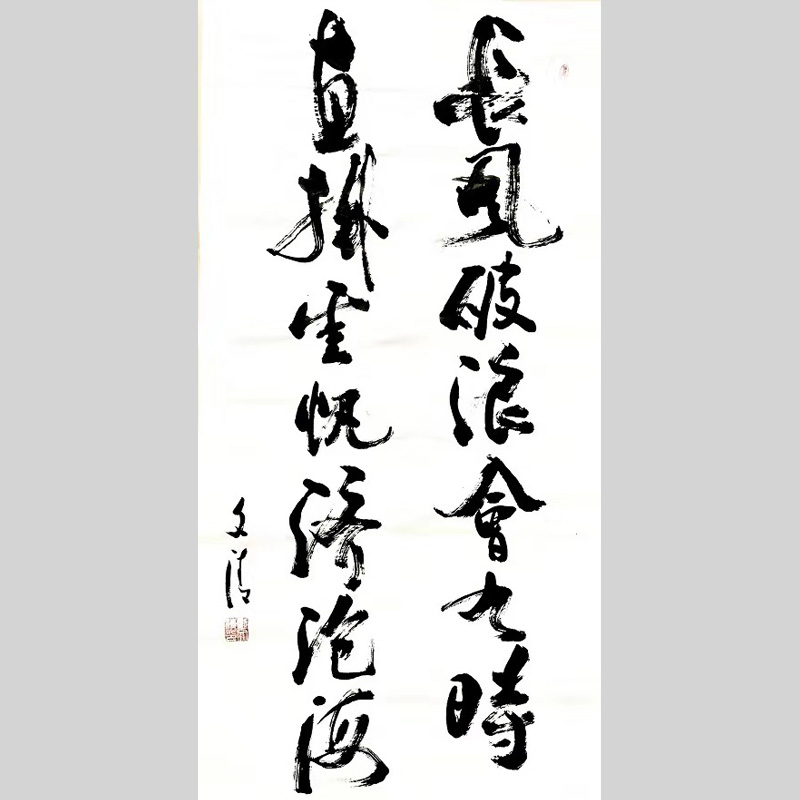 長风破浪會有時
直掛雲帆济沧海
文清